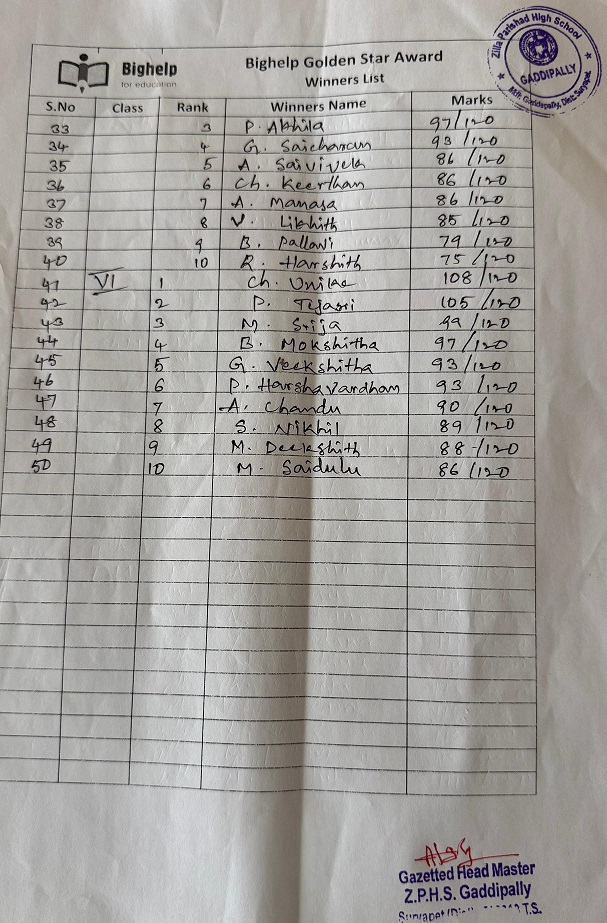 Bighelp
for education
Bighelp Golden Star Award
Winners List
Zilla Parishad High School
GADDIPALLY
S.No Class Rank Winners Name Marks
33 3 P. Akhila 97/120
34 4 G. Saicharan 93/120
35 5 A. Saivivek 86/120
36 6 Ch. Keerthan 86/120
37 7 A. Manasa 86/120
38 8 V. Likhith 85/120
39 9 B. Pallavi 79/120
40 10 R. Harshith 75/120
41 VI 1 Ch. 108/120
42 2 P. Tejasri 105/120
43 3 M. Srija 99/120
44 4 B. Mokshitha 97/120
45 5 G. Veekshitha 93/120
46 6 P. Harshavardham 93/120
47 7 A. Chandu 90/120
48 8 S. Nikhil 89/120
49 9 M. Deekshith 88/120
50 10 M. Saidulu 86/120
Gazetted Head Master
Z.P.H.S. Gaddipally
T.S.